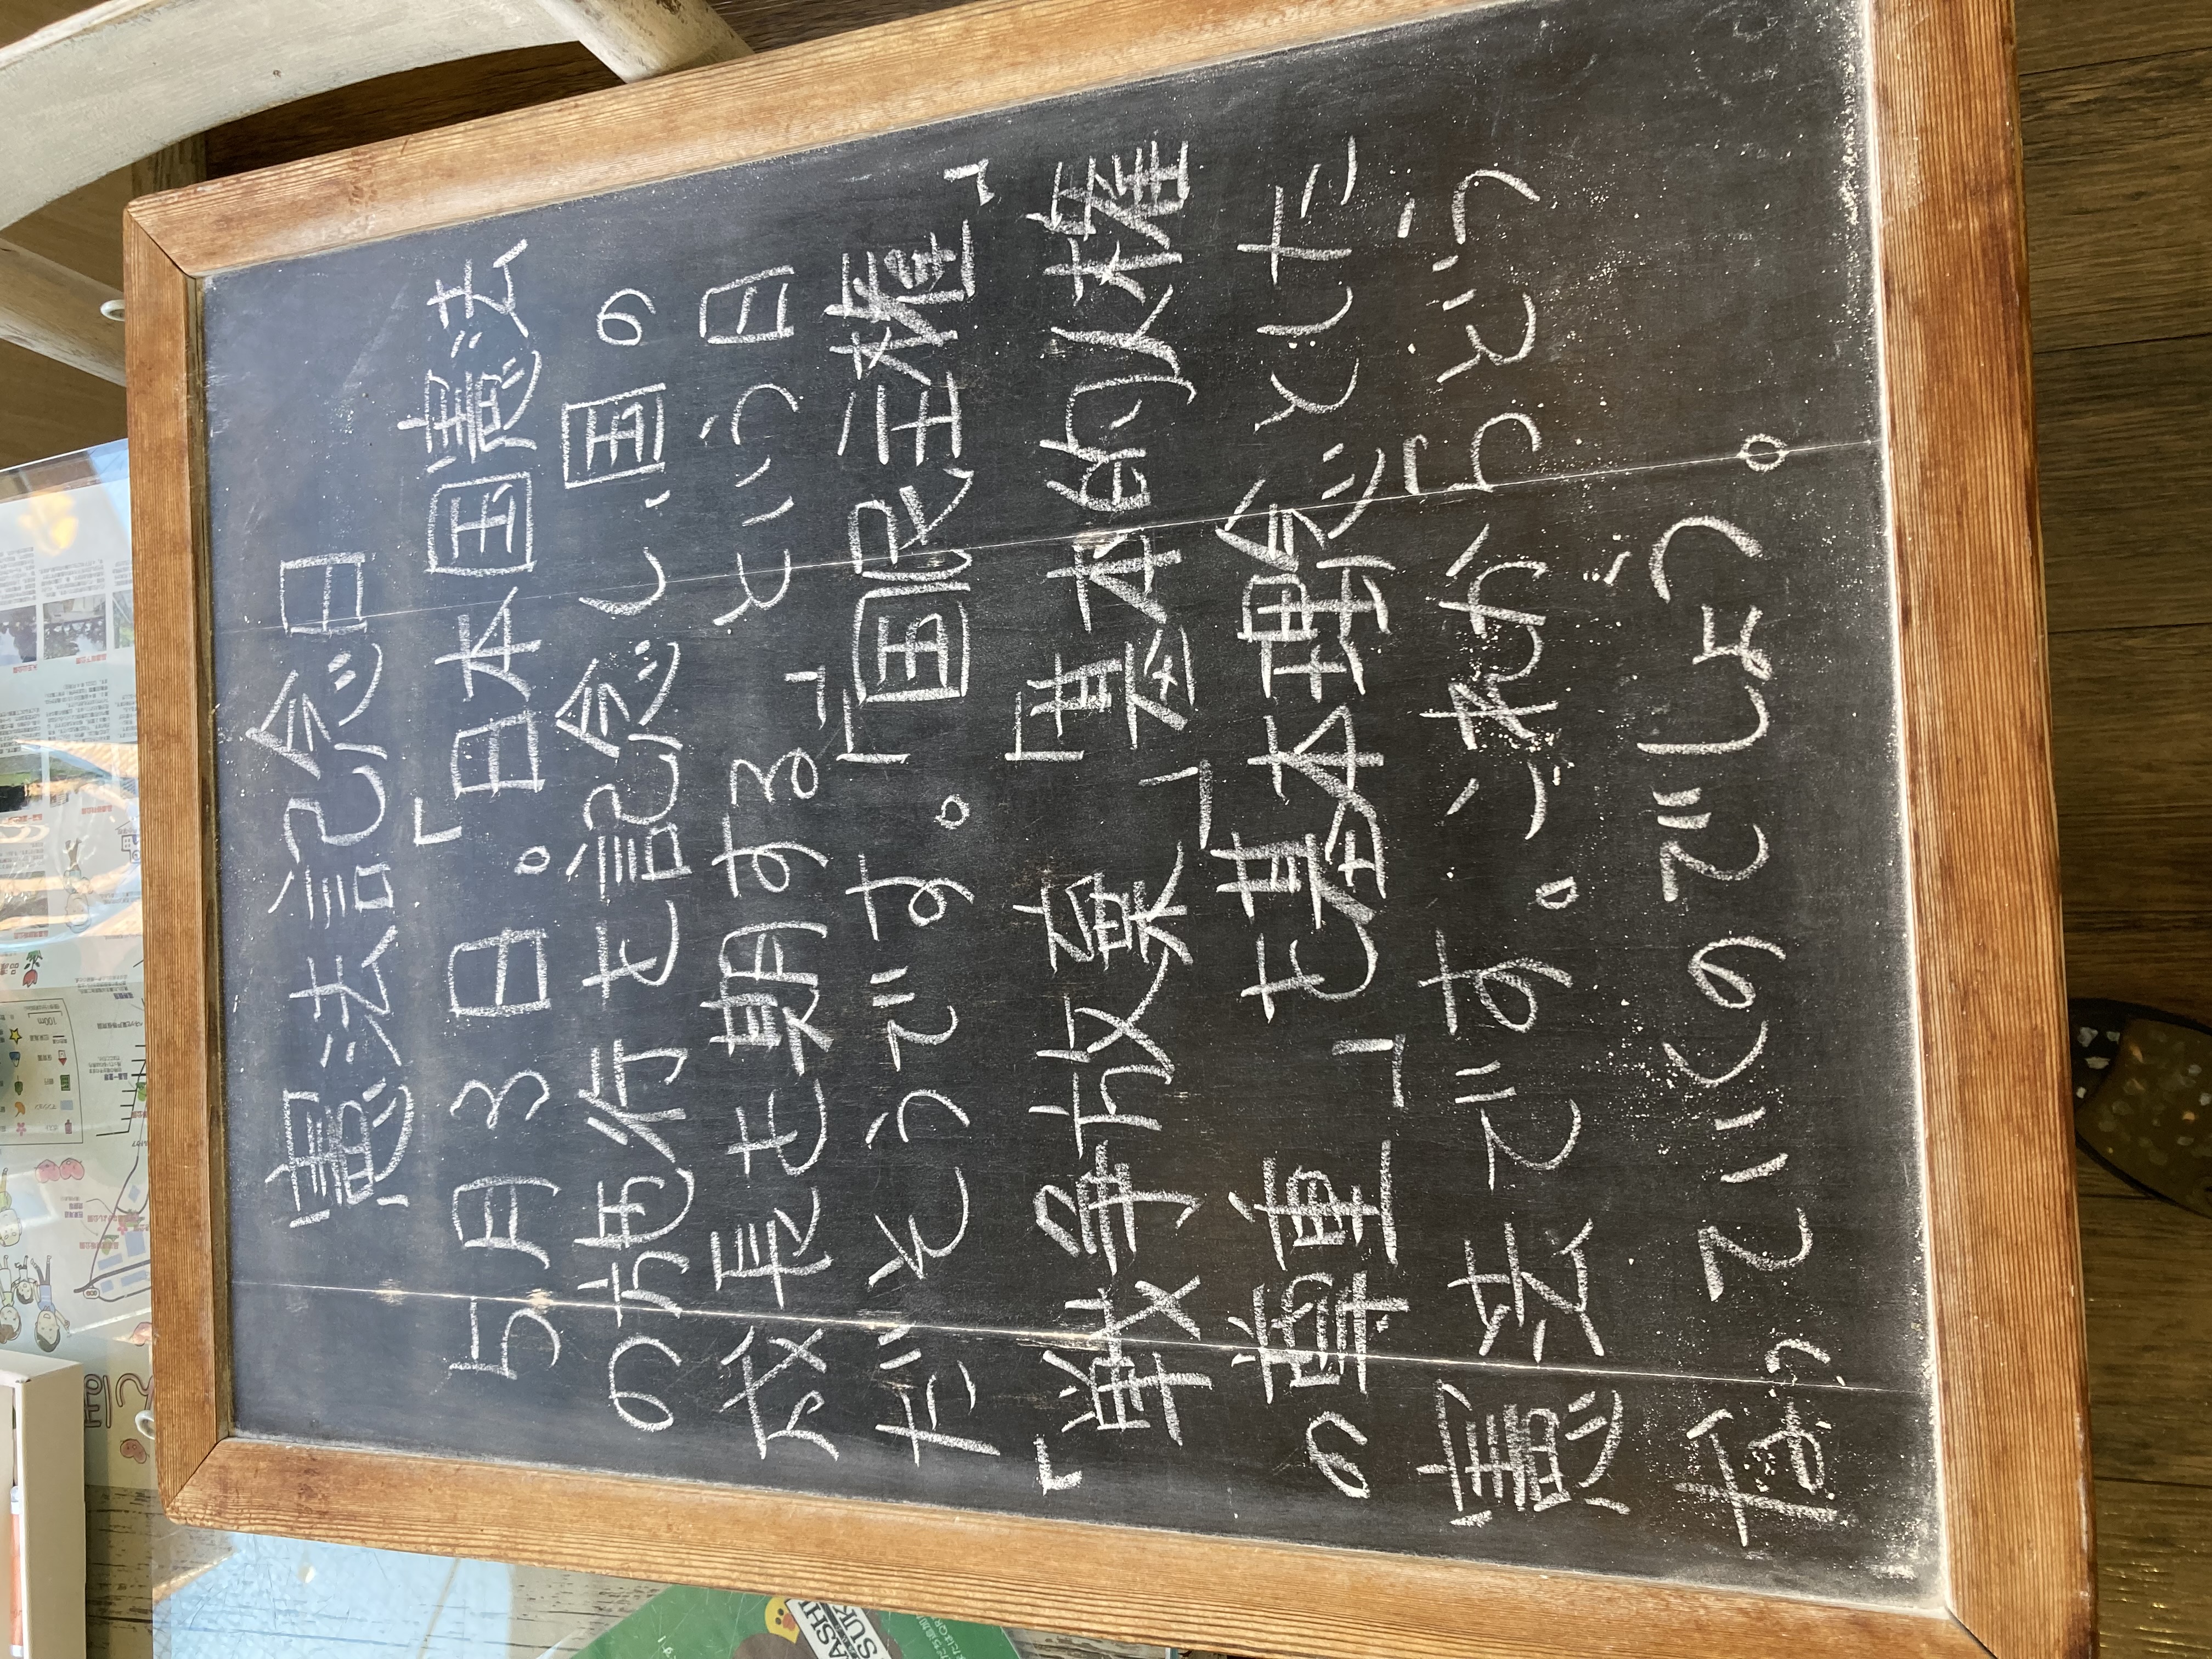 憲法記念日
5月3日。「日本国憲法
の施行を記念し、国の
成長を期する」という日
だそうです。「国民主権」
「戦争放棄」「基本的人権
の尊重」を基本理念とした
憲法です。これからどう
なっていくのでしょう。